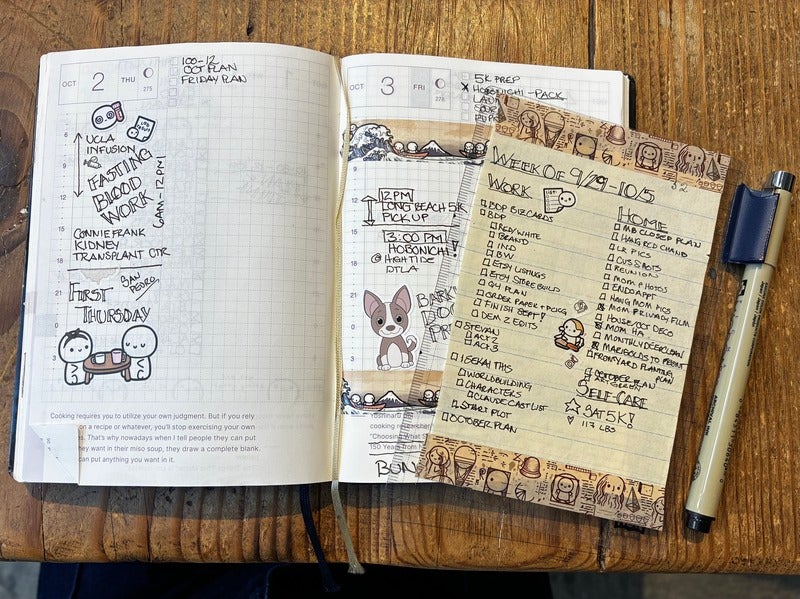 OCT 2 THU
275
100-12
OCT PLAN
FRIDAY PLAN
UCLA
INFUSION
FASTING
BLOOD
WORK
6AM-12PM!
CONNIE FRANK
KIDNEY
TRANSPLANT CTR
FIRST
THURSDAY
SAN
PEDRO
Cooking requires you to utilize your own judgment. But if you rely
a recipe or whatever, you'll stop exercising your own
That's why nowadays when I tell people they can put
they want in their miso soup, they draw a complete blank.
can put anything you want in it.
OCT 3 FRI
276
5K PREP
X HOBONICHI-PACK
LAU
12PM
LONG BEACH 5K
PICK UP
3:00 PM
HOBONICHI!
@ HIGHTIDE
DTLA
BARK
cooking researcher
"Choosing What
150 Years from
BON
WEEK OF 9/29-10/5
WORK
BDP BIZ CARDS
BDP
RED/WHITE
BRAND
IND
BW
ETSY LISTINGS
ETSY STORE BUILD
Q4 PLAN
ORDER PAPER + PCKG
FINISH SEPT!
DEM 2 EDITS
STEVAN
ACT 2
ACT 3
ISEKAI THIS
WORLDBUILDING
CHARACTERS
CLAUDE CAST LIST
START PLOT
OCTOBER PLAN
HOME
MB CLOSED PLAN
HANG RCD CHAND
LR PICS
CUSS POTS
REUNION
MOM PHOTOS
ENDO APPT
HANG MOM PICS
MOM PRIVACY FILM
HOUSE/OCT DECO
MOM HA
MONTHLY DEEP CLEAN
MARIGOLDS TO FRONT
FRONTYARD PLANTING
PLAN
OCTOBER PLAN
SELF-CARE
SAT 5K!
117 LBS